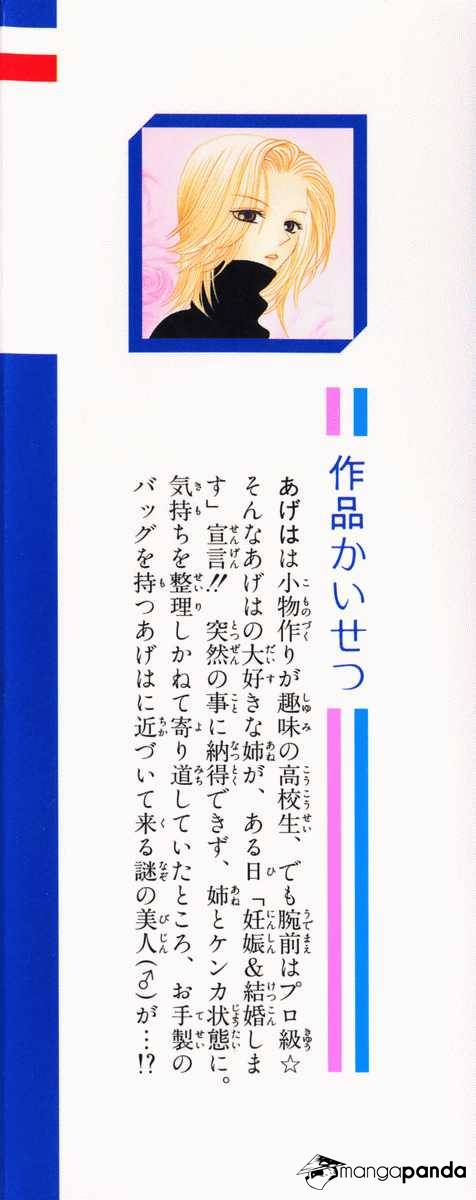 作品かいせつ
あげはは小物作りが趣味の高校生、でも腕前はプロ級☆
そんなあげはの大好きな姉が、ある日「妊娠&結婚しま
す」宣言!! 突然の事に納得できず、姉とケンカ状態に。
気持ちを整理しかねて寄り道していたところ、お手製の
バッグを持つあげはに近づいて来る謎の美人(♂)が…!?
mangapanda